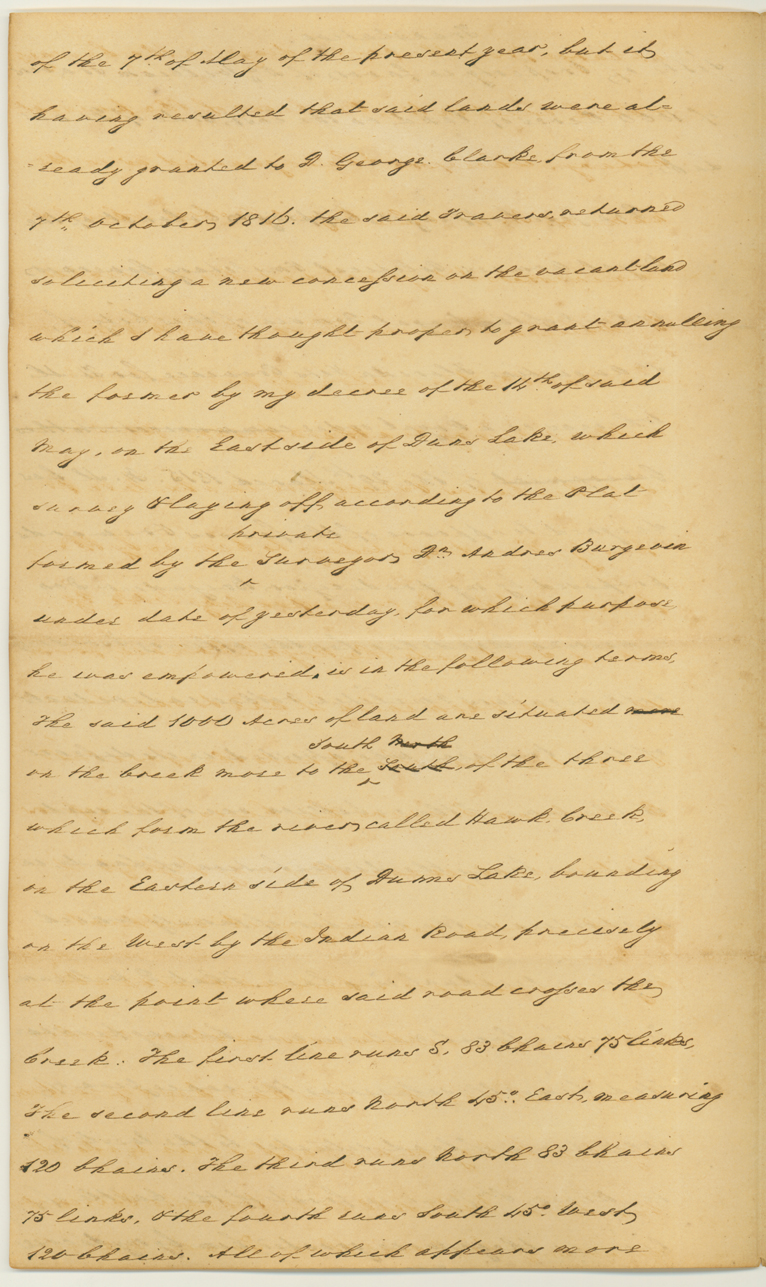 of the 7th of May of the present year, but it
having resulted that said lands were al=
=ready granted to D. George Clarke, from the
7th October, 1816. the said Travers, returned
soliciting a new concession on the vacant land
which I have thought proper, to grant annulling
the former by my decree of the 14th of said
May, on the East side of Duns Lake, which
survey & laying off, according to the Plat
private
formed by the ^ Surveyor, Dn Andres Burgevin
under date of yesterday, for which purpose
he was empowered, is in the following terms,
The said 1000 Acres of land are situated more
South North
on the Creek more to the ^ South, of the three
which form the river, called Hawk Creek,
on the Eastern side of Dunns Lake, bounding
on the West by the Indian Road, precisely
at the point where said road crosses the
Creek. The first line runs S. 83 Chains 75 links,
The second line runs North 45° East, measuring
120 Chains. The third runs North 83 Chains
75 links, & the fourth runs South 45° West,
120 Chains. All of which appears more